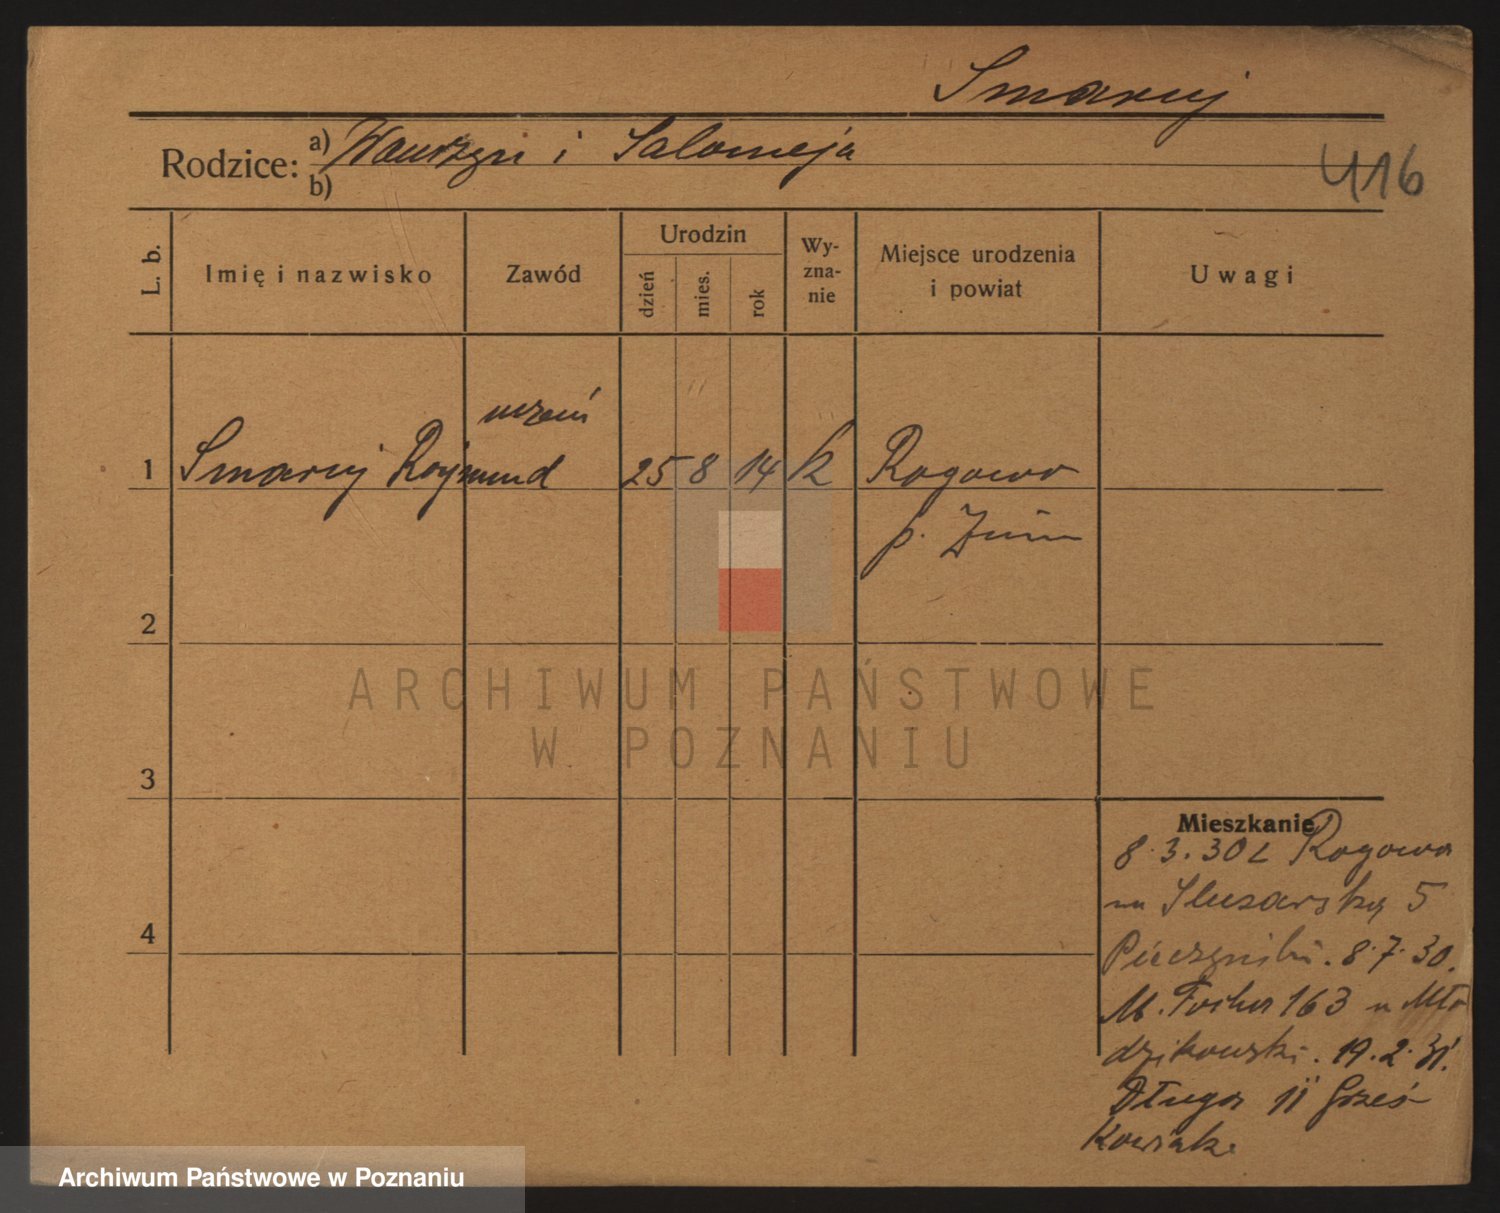 Smaruj
Rodzice: a) Wawrzyn i Salomeja
b)
416
L. b.
Imię i nazwisko
Zawód
Urodzin
dzień
mies.
rok
Wy-
zna-
nie
Miejsce urodzenia
i powiat
Uwagi
uczeń
1 Smaruj Rajmund 25 8 14 k Rogowo
p. Żnin
2
ARCHIWUM PAŃSTWOWE
W POZNANIU
3
Mieszkanie
8.3.30 z Rogowa
na Ślusarską 5
8.7.30.
M. Focha 163 u Mło
dzikowski. 19.2.31.
4
Długa 11 Grześ-
kowiak.
Archiwum Państwowe w Poznaniu